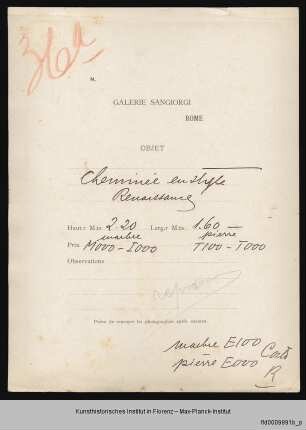 36a
N.
GALERIE SANGIORGI
ROME
OBJET
Cheminée en style
Renaissance
Haut.r Max 2.20 Larg.r Max. 1.60
marbre pierre
Prix M000 - I000 T100 - T000
Observations
Prière de renvoyer les photographies après examen.
marbre E100
pierre E000
Kunsthistorisches Institut in Florenz – Max-Planck-Institut
fld0009991b_p